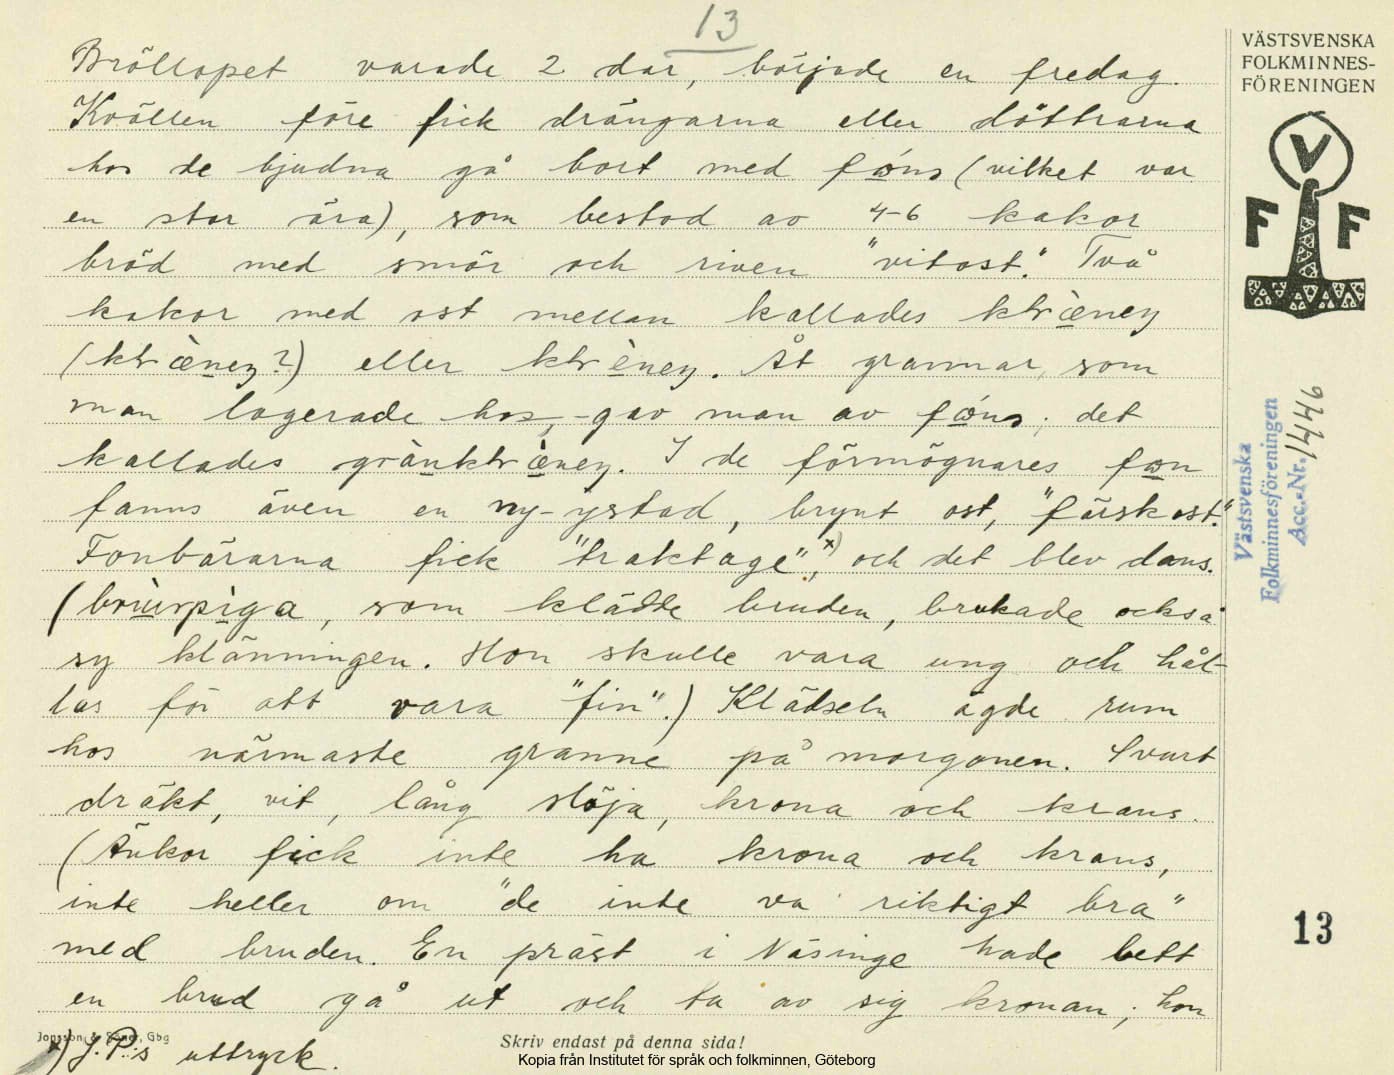 13
Bröllopet varade 2 dar, började en fredag.
Kvällen före fick drängarna eller döttrarna
hos de bjudna gå bort med fɷ́ns (vilket var
en stor ära), som bestod av 4-6 kakor
bröd med smör och riven "vitost." Två
kakor med ost mellan kallades
eller . Åt grannar, som
man lagerade hos, gav man av fɷ́ns; det
kallades . I de förmögnares fɷn
fanns även en ny-ystad, brynt ost, "färskost."
Fonbärarna fick "traktage",x) och det blev dans.
(som klädde bruden, brukade också
sy klänningen. Hon skulle vara ung och hål-
las för att vara "fin".) Klädseln ägde rum
hos närmaste granne på morgonen. Svart
dräkt, vit, lång slöja, krona och krans.
(Änkor fick inte ha krona och krans,
inte heller om "de inte va riktigt bra"
med bruden. En präst i Näsinge hade bett
en brud gå ut och ta av sig kronan; hon
x) J. P:s uttryck.
VÄSTSVENSKA
FOLKMINNES-
FÖRENINGEN
V
F F
Västsvenska
Folkminnesföreningen
Acc.-Nr. 1446
13
Jonsson & Söner, Gbg
Skriv endast på denna sida!
Kopia från Institutet för språk och folkminnen, Göteborg